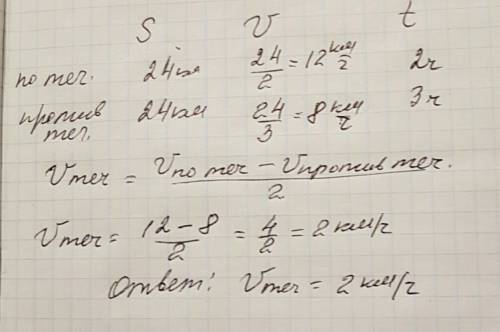 S V t
по теч. 24км 24/2 = 12 км/ч 2ч
против теч. 24км 24/3 = 8 км/ч 3ч
Vтеч = (Vпо теч – Vпротив теч.)/2
Vтеч = (12 – 8)/2 = 4/2 = 2 км/ч
Ответ: Vтеч = 2 км/ч